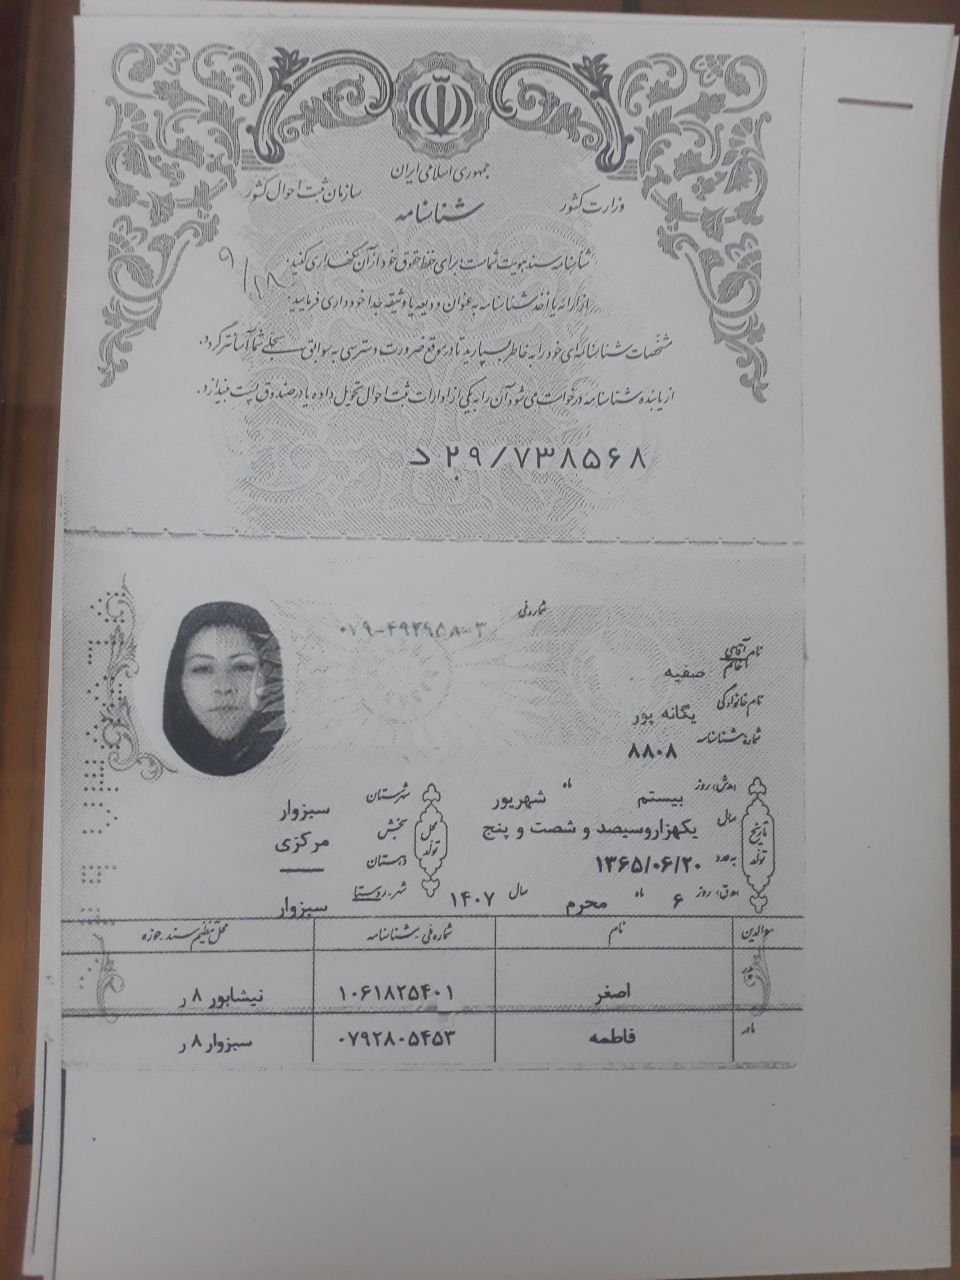 جمهوری اسلامی ایران
وزارت کشور
سازمان ثبت احوال کشور
شناسنامه
۹/۲۸
شناسنامه سند هویت شماست برای حفظ حقوق خود از آن نگهداری کنید.
از ارائه یا أخذ شناسنامه به عنوان ودیعه یا وثیقه جداً خودداری فرمایید.
مشخصات شناسنامه‌ای خود را به خاطر بسپارید تا در موقع ضرورت دسترسی به سوابق سجلی شما آسانتر گردد.
از یابنده شناسنامه درخواست می شود آن را به یکی از ادارات ثبت احوال تحویل داده یا در صندوق پست بیندازد.
د ۲۹/۷۳۸۵۶۸
شماره ملی
نام آقای خانم صفیه
نام خانوادگی یگانه پور
شماره شناسنامه ۸۸۰۸
تاریخ تولد
ه‍.ش: روز بیستم ماه شهریور
سال یکهزاروسیصد و شصت و پنج
به عدد ۱۳۶۵/۰۶/۲۰
ه‍.ق: روز ۶ ماه محرم سال ۱۴۰۷
محل تولد
شهرستان سبزوار
بخش مرکزی
دهستان
شهر-روستا سبزوار
والدین نام شماره ملی-شناسنامه محل تنظیم سند-حوزه
پدر اصغر ۱۰۶۱۸۲۵۴۰۱ نیشابور ۸ ر
مادر فاطمه ۰۷۹۲۸۰۵۴۵۳ سبزوار ۸ ر